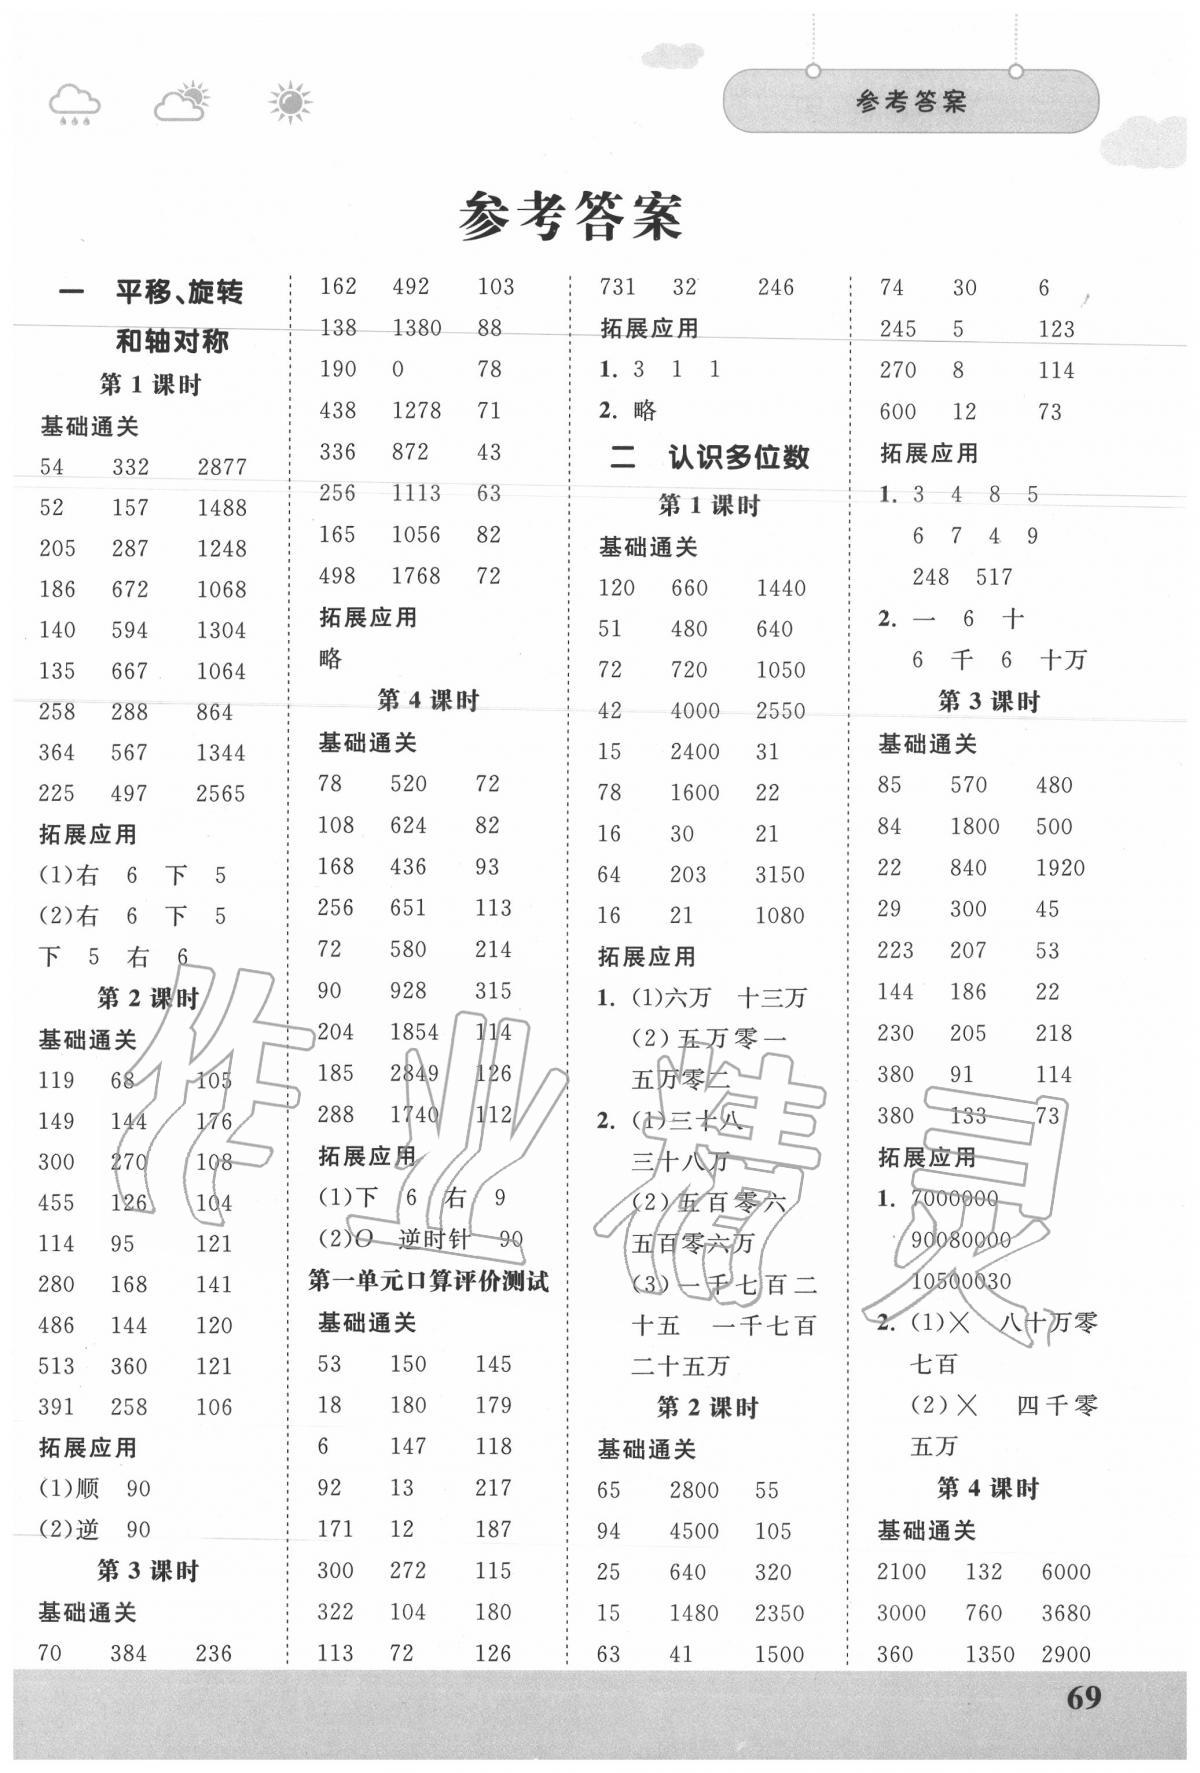 参考答案
参考答案
一 平移、旋转
和轴对称
第1课时
基础通关
54 332 2877
52 157 1488
205 287 1248
186 672 1068
140 594 1304
135 667 1064
258 288 864
364 567 1344
225 497 2565
拓展应用
(1)右 6 下 5
(2)右 6 下 5
下 5 右 6
第2课时
基础通关
119 68 105
149 144 176
300 270 108
455 126 104
114 95 121
280 168 141
486 144 120
513 360 121
391 258 106
拓展应用
(1)顺 90
(2)逆 90
第3课时
基础通关
70 384 236
162 492 103
138 1380 88
190 0 78
438 1278 71
336 872 43
256 1113 63
165 1056 82
498 1768 72
拓展应用
略
第4课时
基础通关
78 520 72
108 624 82
168 436 93
256 651 113
72 580 214
90 928 315
204 1854 114
185 2849 126
288 1740 112
拓展应用
(1)下 6 右 9
(2)O 逆时针 90
第一单元口算评价测试
基础通关
53 150 145
18 180 179
6 147 118
92 13 217
171 12 187
300 272 115
322 104 180
113 72 126
731 32 246
拓展应用
1. 3 1 1
2. 略
二 认识多位数
第1课时
基础通关
120 660 1440
51 480 640
72 720 1050
42 4000 2550
15 2400 31
78 1600 22
16 30 21
64 203 3150
16 21 1080
拓展应用
1. (1)六万 十三万
(2)五万零一
五万零二
2. (1)三十八
三十八万
(2)五百零六
五百零六万
(3)一千七百二
十五 一千七百
二十五万
第2课时
基础通关
65 2800 55
94 4500 105
25 640 320
15 1480 2350
63 41 1500
74 30 6
245 5 123
270 8 114
600 12 73
拓展应用
1. 3 4 8 5
6 7 4 9
248 517
2. 一 6 十
6 千 6 十万
第3课时
基础通关
85 570 480
84 1800 500
22 840 1920
29 300 45
223 207 53
144 186 22
230 205 218
380 91 114
380 133 73
拓展应用
1. 7000000
90080000
10500030
2. (1)× 八十万零
七百
(2)× 四千零
五万
第4课时
基础通关
2100 132 6000
3000 760 3680
360 1350 2900
69
作业精灵